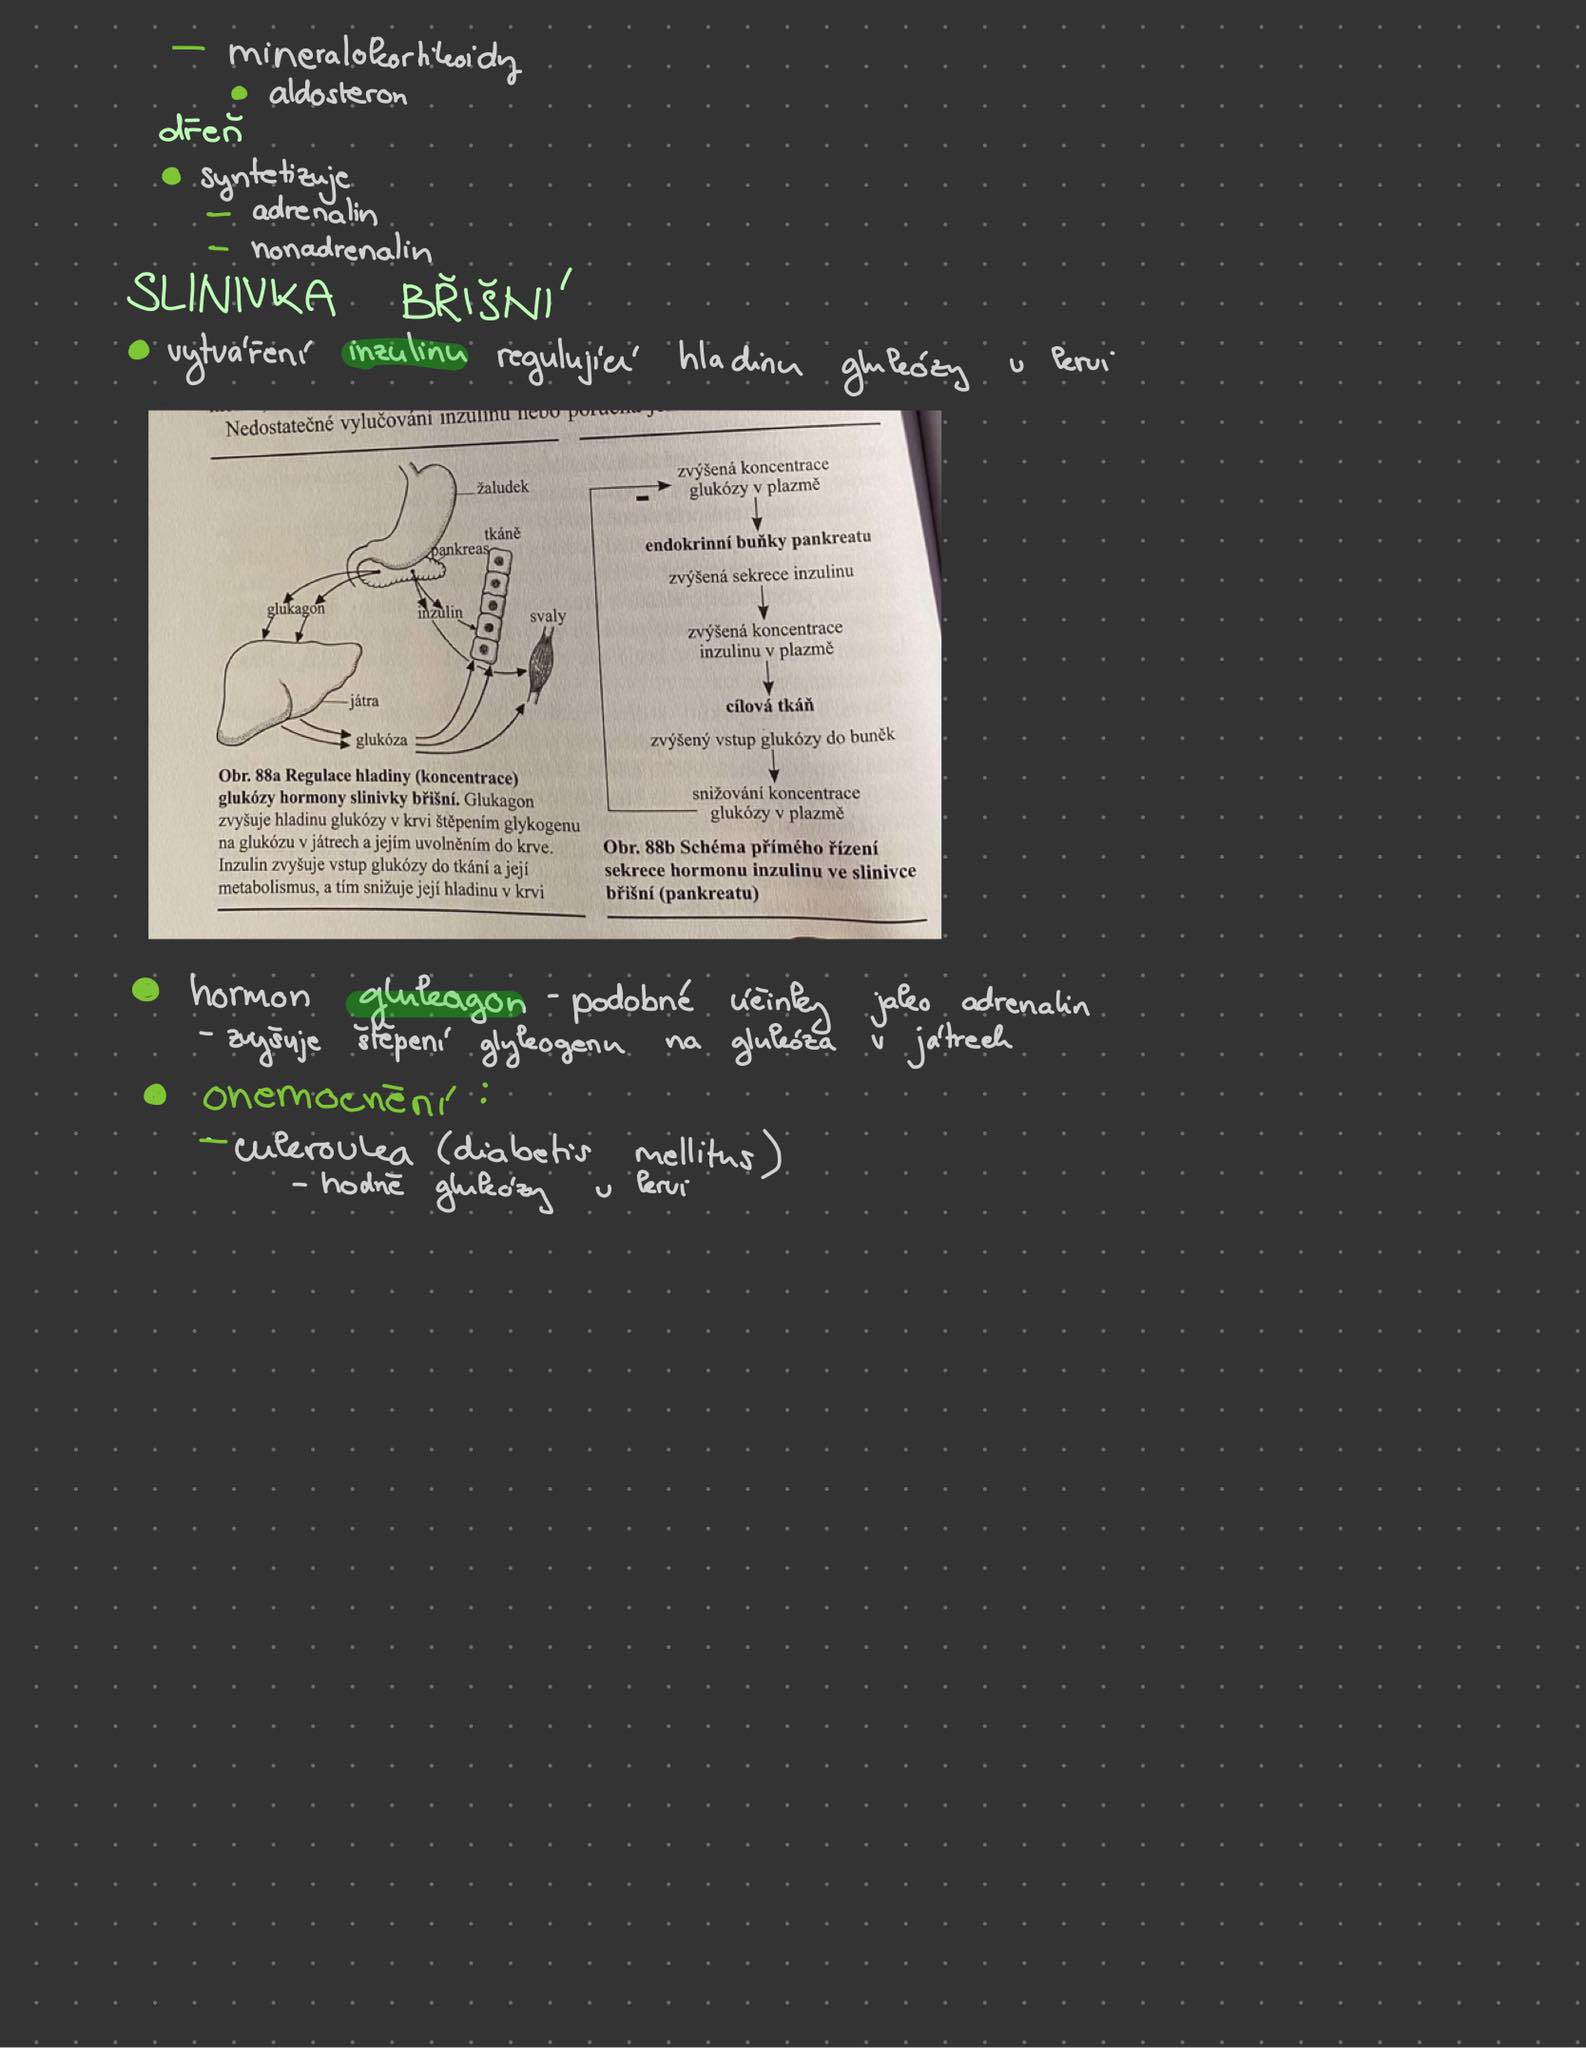 — mineralokortikoidy
• aldosteron
dřeň
• syntetizuje
— adrenalin
— nonadrenalin
SLINIVKA BŘIŠNÍ
• vytváření inzulinu regulující hladinu glukózy v krvi
Nedostatečné vylučování inzulinu nebo porucha
žaludek
tkáně
pankreas
glukagon
inzulin
svaly
játra
glukóza
Obr. 88a Regulace hladiny (koncentrace)
glukózy hormony slinivky břišní. Glukagon
zvyšuje hladinu glukózy v krvi štěpením glykogenu
na glukózu v játrech a jejím uvolněním do krve.
Inzulin zvyšuje vstup glukózy do tkání a její
metabolismus, a tím snižuje její hladinu v krvi
zvýšená koncentrace
glukózy v plazmě
-
endokrinní buňky pankreatu
zvýšená sekrece inzulinu
zvýšená koncentrace
inzulinu v plazmě
cílová tkáň
zvýšený vstup glukózy do buněk
snižování koncentrace
glukózy v plazmě
Obr. 88b Schéma přímého řízení
sekrece hormonu inzulinu ve slinivce
břišní (pankreatu)
• hormon glukagon - podobné účinky jako adrenalin
- zvyšuje štěpení glykogenu na glukóza v játrech
• onemocnění:
— cukrovka (diabetis mellitus)
- hodně glukózy v krvi